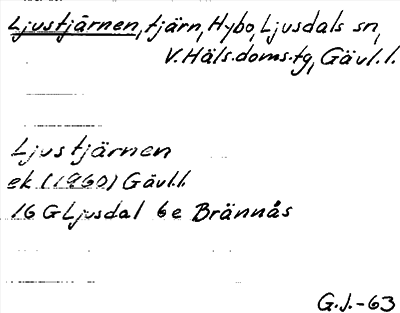 Ljustjärnen, tjärn, Hybo, Ljusdals sn,
V. Häls. doms. tg, Gävl. l.
Ljustjärnen
ek (1960) Gävl.l.
16 G Ljusdal 6e Brännås
G. J. -63